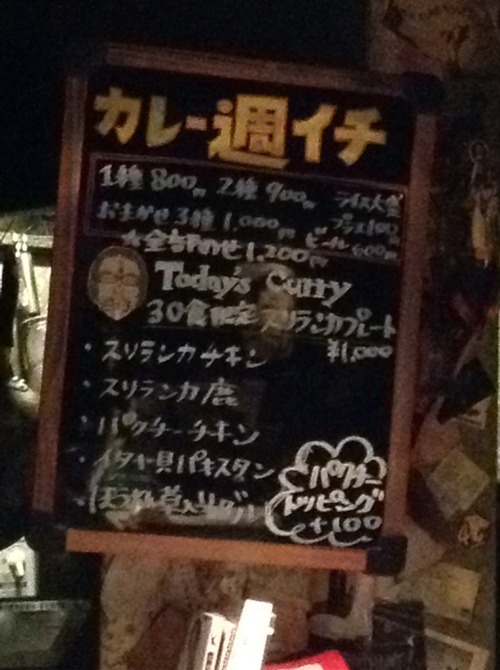 カレー週イチ
1種 800円 2種 900円 ライス大盛
おまかせ3種 1,000円 プラス100円
ビール 600円
★全部のせ 1,200円
Today's Curry
30食限定 スリランカプレート
¥1,000
・スリランカチキン
・スリランカ鹿
・パクチーチキン
・イタヤ貝パキスタン
・ほうれん草入り
パクチー
トッピング
+100